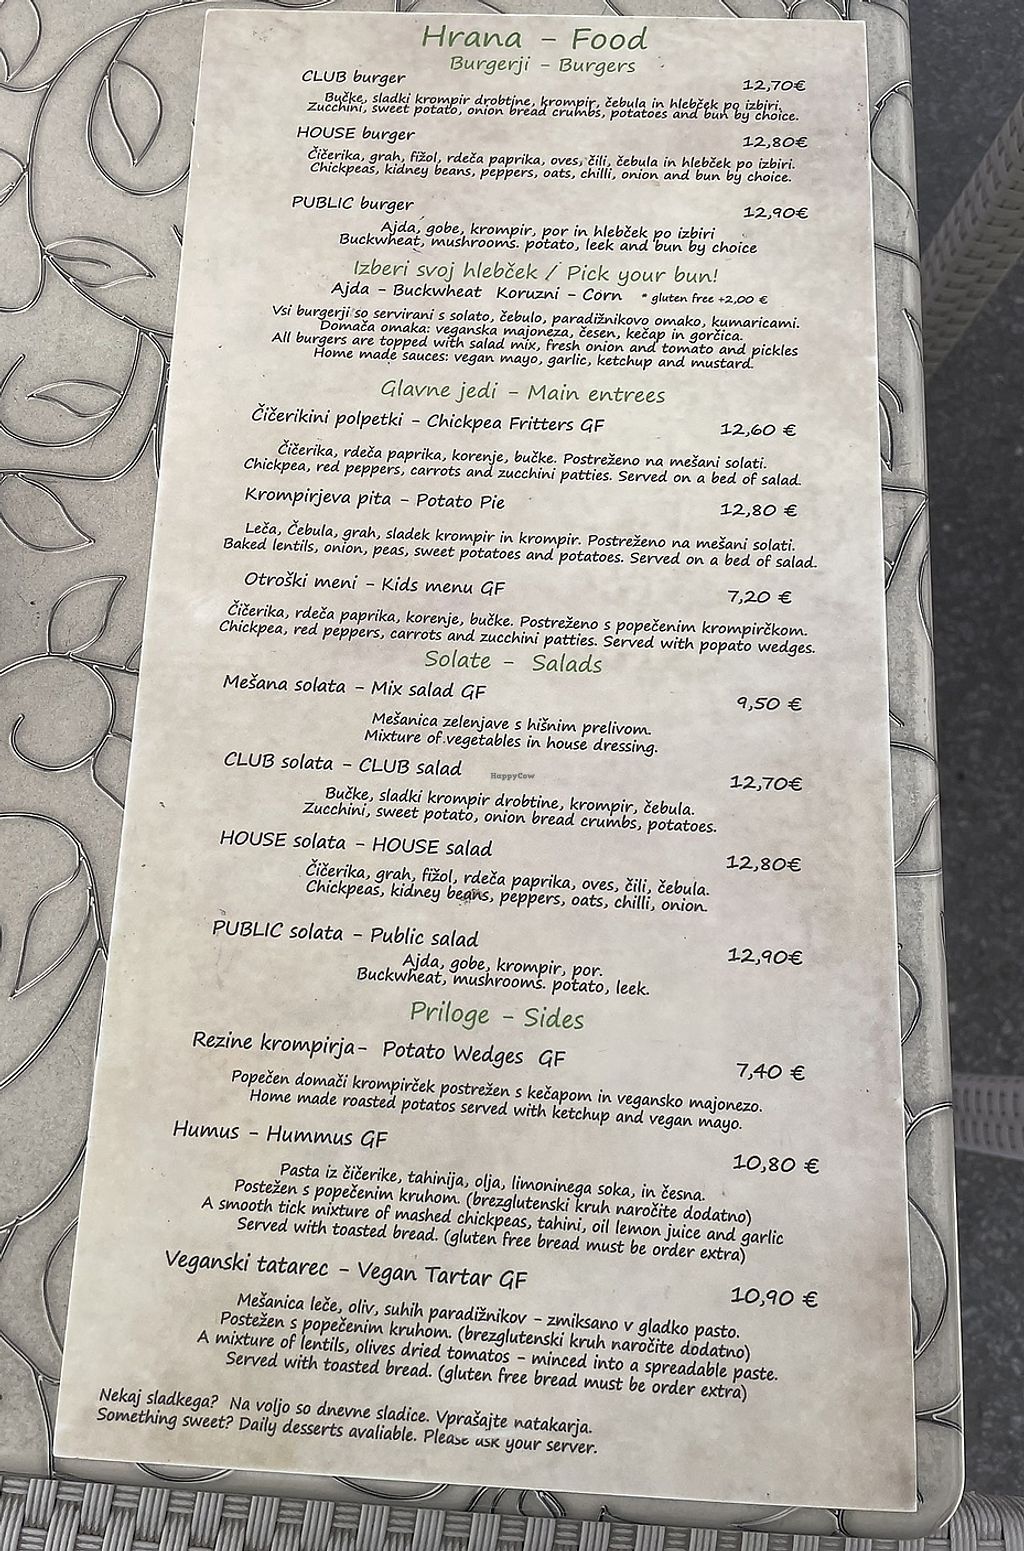 Hrana - Food
Burgerji - Burgers
CLUB burger 12,70€
Bučke, sladki krompir drobtine, krompir, čebula in hlebček po izbiri.
Zucchini, sweet potato, onion bread crumbs, potatoes and bun by choice.
HOUSE burger 12,80€
Čičerika, grah, fižol, rdeča paprika, oves, čili, čebula in hlebček po izbiri.
Chickpeas, kidney beans, peppers, oats, chilli, onion and bun by choice.
PUBLIC burger 12,90€
Ajda, gobe, krompir, por in hlebček po izbiri
Buckwheat, mushrooms. potato, leek and bun by choice
Izberi svoj hlebček / Pick your bun!
Ajda - Buckwheat Koruzni - Corn * gluten free +2,00 €
Vsi burgerji so servirani s solato, čebulo, paradižnikovo omako, kumaricami.
Domača omaka: veganska majoneza, česen, kečap in gorčica.
All burgers are topped with salad mix, fresh onion and tomato and pickles
Home made sauces: vegan mayo, garlic, ketchup and mustard.
Glavne jedi - Main entrees
Čičerikini polpetki - Chickpea Fritters GF 12,60 €
Čičerika, rdeča paprika, korenje, bučke. Postreženo na mešani solati.
Chickpea, red peppers, carrots and zucchini patties. Served on a bed of salad.
Krompirjeva pita - Potato Pie 12,80 €
Leča, Čebula, grah, sladek krompir in krompir. Postreženo na mešani solati.
Baked lentils, onion, peas, sweet potatoes and potatoes. Served on a bed of salad.
Otroški meni - Kids menu GF 7,20 €
Čičerika, rdeča paprika, korenje, bučke. Postreženo s popečenim krompirčkom.
Chickpea, red peppers, carrots and zucchini patties. Served with popato wedges.
Solate - Salads
Mešana solata - Mix salad GF 9,50 €
Mešanica zelenjave s hišnim prelivom.
Mixture of vegetables in house dressing.
CLUB solata - CLUB salad 12,70€
HappyCow
Bučke, sladki krompir drobtine, krompir, čebula.
Zucchini, sweet potato, onion bread crumbs, potatoes.
HOUSE solata - HOUSE salad 12,80€
Čičerika, grah, fižol, rdeča paprika, oves, čili, čebula.
Chickpeas, kidney beans, peppers, oats, chilli, onion.
PUBLIC solata - Public salad 12,90€
Ajda, gobe, krompir, por.
Buckwheat, mushrooms. potato, leek.
Priloge - Sides
Rezine krompirja- Potato Wedges GF 7,40 €
Popečen domači krompirček postrežen s kečapom in vegansko majonezo.
Home made roasted potatos served with ketchup and vegan mayo.
Humus - Hummus GF 10,80 €
Pasta iz čičerike, tahinija, olja, limoninega soka, in česna.
Postežen s popečenim kruhom. (brezglutenski kruh naročite dodatno)
A smooth tick mixture of mashed chickpeas, tahini, oil lemon juice and garlic
Served with toasted bread. (gluten free bread must be order extra)
Veganski tatarec - Vegan Tartar GF 10,90 €
Mešanica leče, oliv, suhih paradižnikov - zmiksano v gladko pasto.
Postežen s popečenim kruhom. (brezglutenski kruh naročite dodatno)
A mixture of lentils, olives dried tomatos - minced into a spreadable paste.
Served with toasted bread. (gluten free bread must be order extra)
Nekaj sladkega? Na voljo so dnevne sladice. Vprašajte natakarja.
Something sweet? Daily desserts avaliable. Please ask your server.